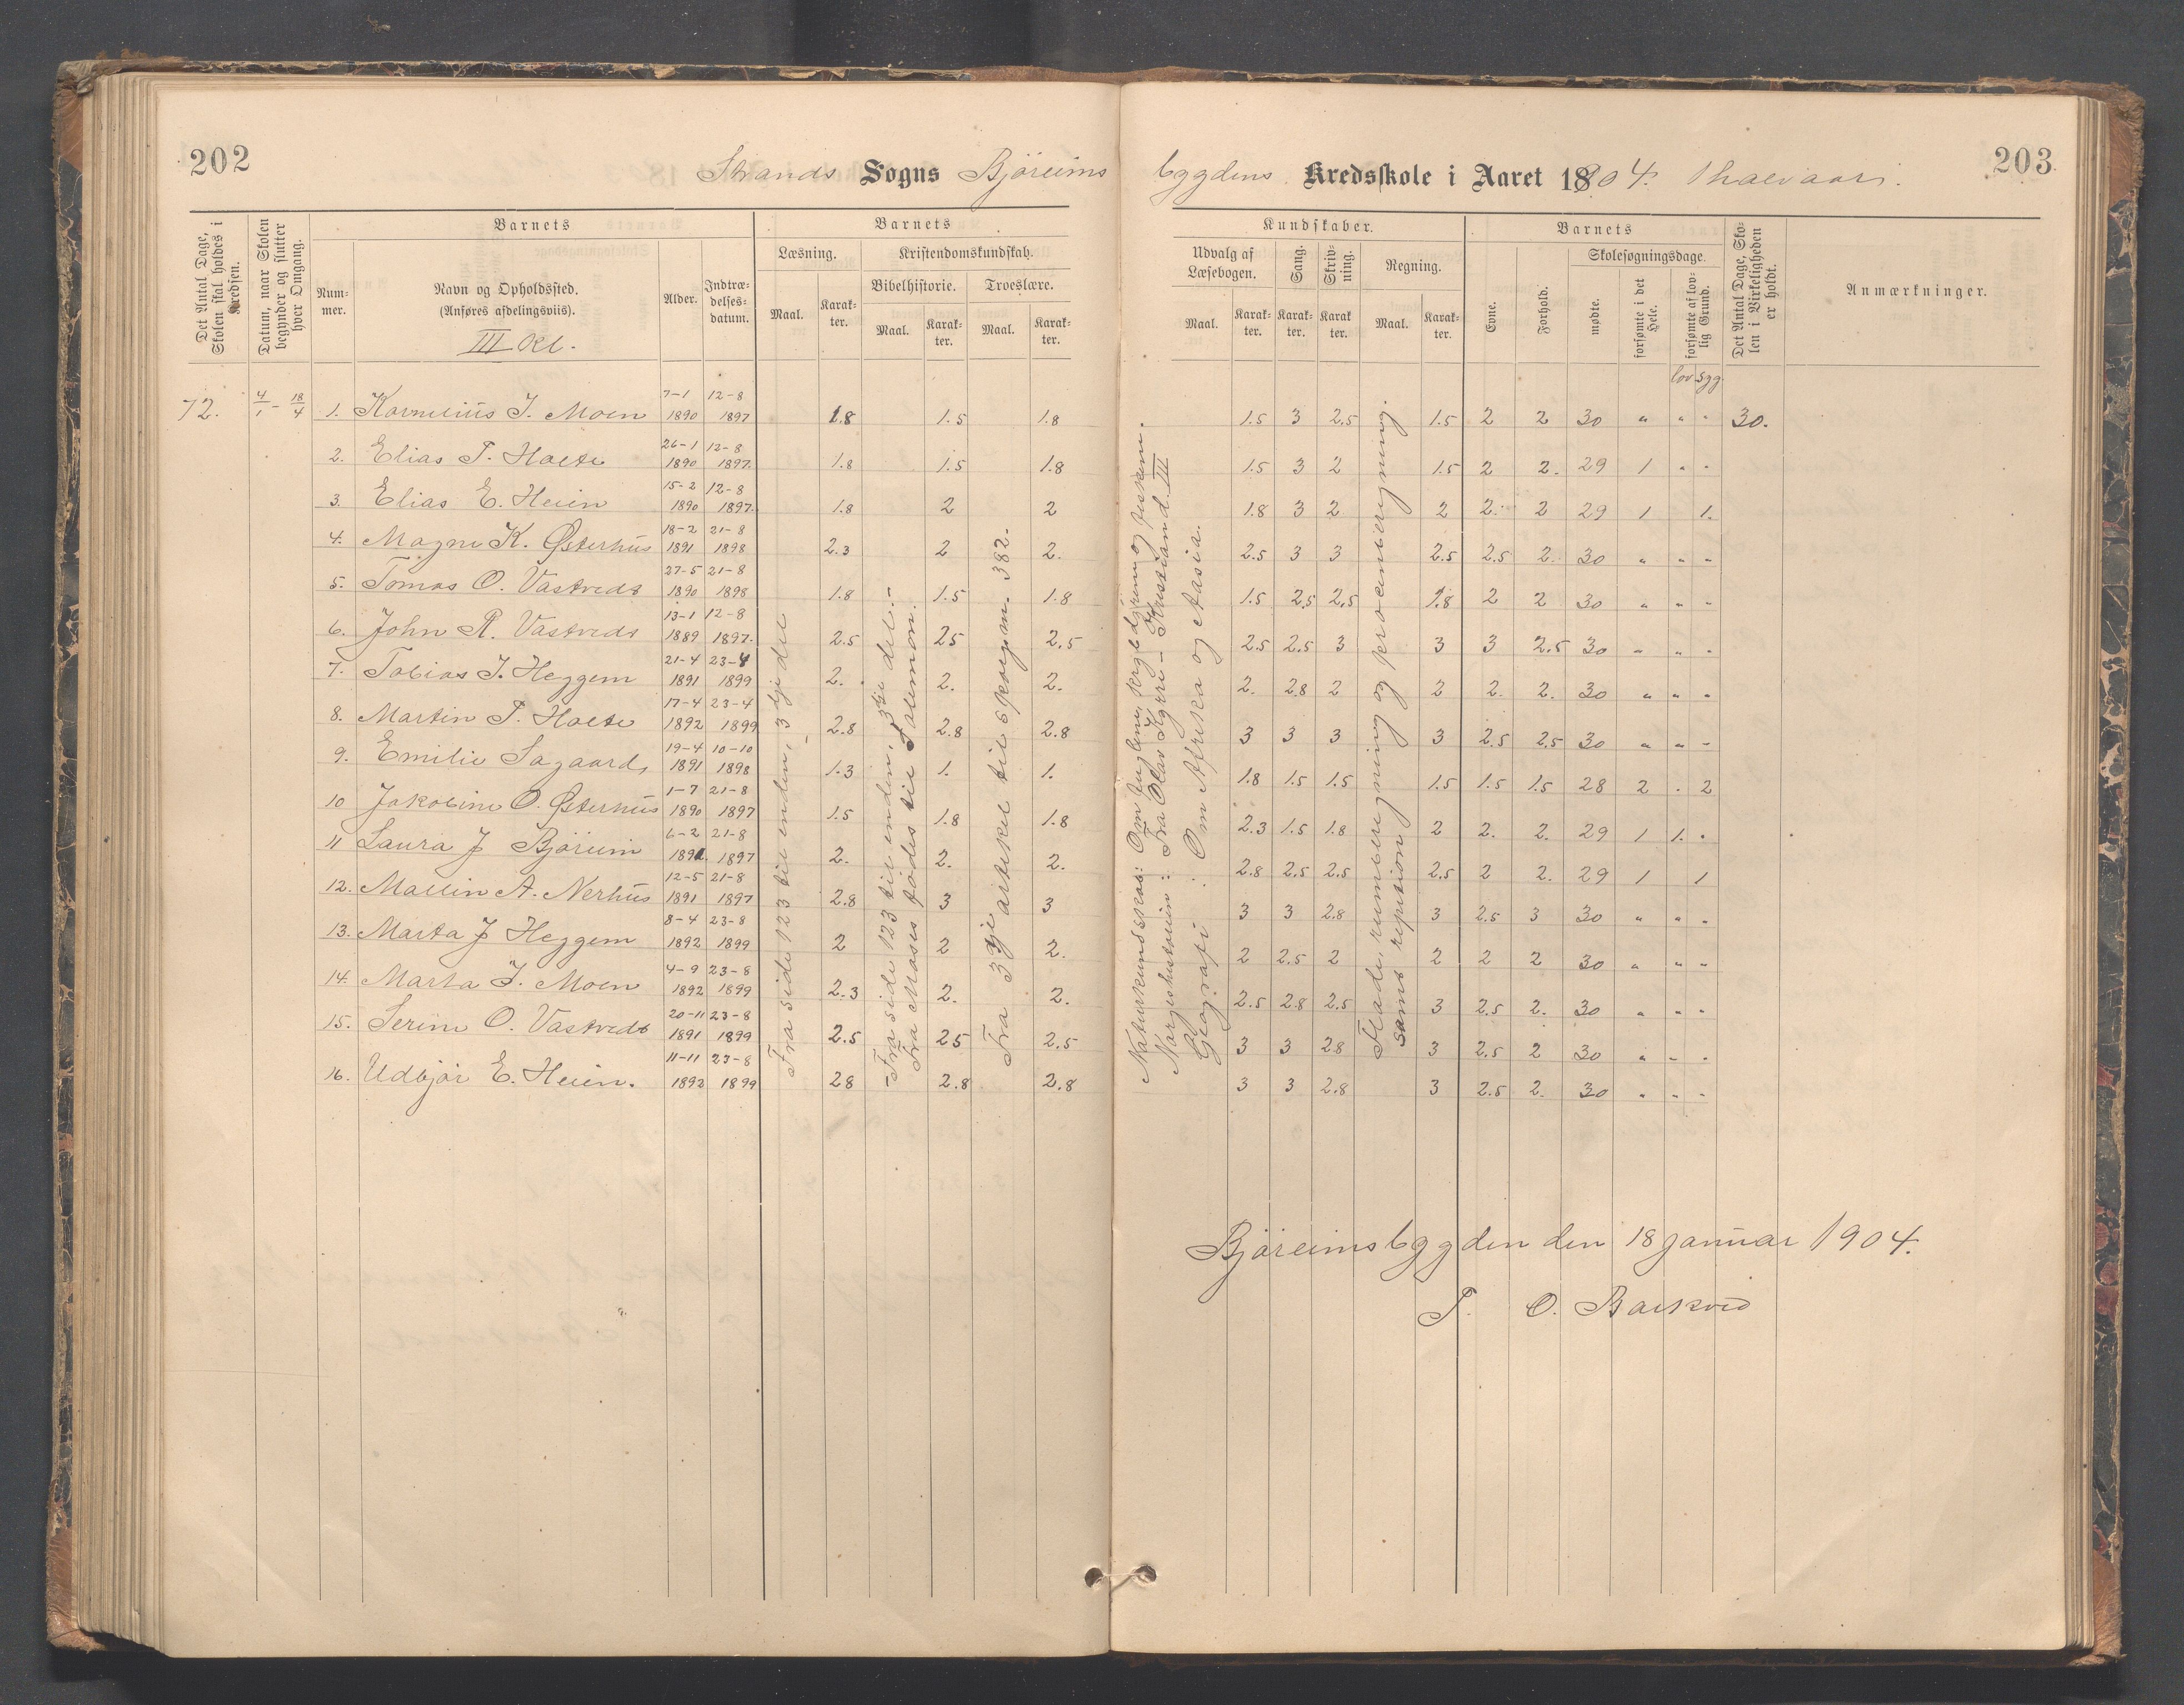 202
Strands Sogns Björeims
Det Antal Dage, Skolen skal holdes i Kredsen.
Datum, naar Skolen begynder og slutter hver Omgang.
Barnets
Num-mer.
Navn og Opholdssted.
(Anføres afdelingsviis).
III Kl.
Alder.
Indtræ-delses-datum.
Barnets
Læsning.
Kristendomskundskab.
Bibelhistorie.
Troeslære.
Maal.
Karak-ter.
Maal.
Karak-ter.
Maal.
Karak-ter.
72. 4/1 - 18/4 1. Kornelius J. Moen 7-1 1890 12-8 1897 1.8 1.5 1.8
2. Elias T. Holte 26-1 1890 12-8 1897. 1.8 1.5 1.8
3. Elias E. Heien 15-2 1890 12-8 1897. 1.8 2 2
4. Magne K. Østerhus 18-2 1891 21-8 1898 2.3 2 2.
5. Tomas O. Vastveds 27-5 1890 21-8 1898 1.8 1.5 1.8
6. John R. Vastveds 13-1 1889 12-8 1897. 2.5 25 2.5
7. Tobias J. Heggem 21-4 1891 23-4 1899 2. 2. 2.
8. Martin T. Holte 17-4 1892 23-4 1899 2.8 2.8 2.8
9. Emilie Sagaard 19-4 1891 10-10 1898 1.3 1. 1.
10 Jakobine O. Østerhus 1-7 1890 21-8 1897 1.5 1.8 1.8
11 Laura J Björeim 6-2 1891. 21-8 1897 2. 2. 2.
12. Mallin A. Nerhus 12-5 1891 21-8 1897 2.8 3 3
13. Marta J Heggem 8-4 1892 23-8 1899 2 2 2.
14. Marta J. Moen 4-9 1892 23-8 1899 2.3 2. 2.
15. Serine O. Vastveds 20-11 1891 23-8 1899 2.5 25 2.5
16. Udbjör E. Heien. 11-11 1892 23-8 1899 28 2.8 2.8
Fra side 123 til enden, 3dje del
Fra side 123 til enden, 3die del.-
Fra Moses födes til Salemon.
Fra 3dje artikel til spörgsm. 382.
203
bygdens Kredsskole i Aaret 1804. 1 halvaar.
Kundskaber.
Udvalg af Læsebogen.
Sang.
Skriv-ning.
Regning.
Maal.
Karak-ter.
Karak-ter.
Karak-ter.
Maal.
Karak-ter.
Barnets
Evne.
Forhold.
Skolesøgningsdage.
mødte.
forsømte i det Hele.
forsømte af lov-lig Grund.
Det Antal Dage, Sko-len i Virkeligheden er holdt.
Anmærkninger.
lov. syg.
1.5 3 2.5 1.5 2 2 30 " " " 30.
1.5 3 2 1.5 2 2. 29 1 " "
1.8 3 2 2 2. 2 29 1 1.
2.5 3 3 2.5 2.5 2. 30 " " "
1.5 2.5 2.5 1.8 2 2 30 " " "
2.5 2.5 3 3 3 2.5 30 " " "
2. 2.8 2 2 2. 2. 30 " " "
3 3 3 3 2.5 2.5 30 " " "
1.8 1.5 1.5 1.5 1.5 1.5 28 2 . 2
2.3 1.5 1.8 2 2. 2. 29 1 1. .
2.8 2.5 2.5 2.5 2 2. 29 1 1
3 3 2.8 3 2.5 3 30 " " "
2 2.5 2 2 2 2 30 " " "
2.5 2.8 2.5 3 2.5 2. 30 " " "
3 3 28 3 2.5 2 30 " " "
3 3 2.8 3 2.5 2. 30 " " "
Naturkundskab: Om fuglene, krybdyrene og fiskene.
Norgeshistorien: Fra Olav Kyrre - Kristian d. III
Geografi : Om Afrika og Aasia.
Flade, rumberegning og procentregning.
samt repition
Björeimsbygden den 18 januar 1904.
T. O. Barkved